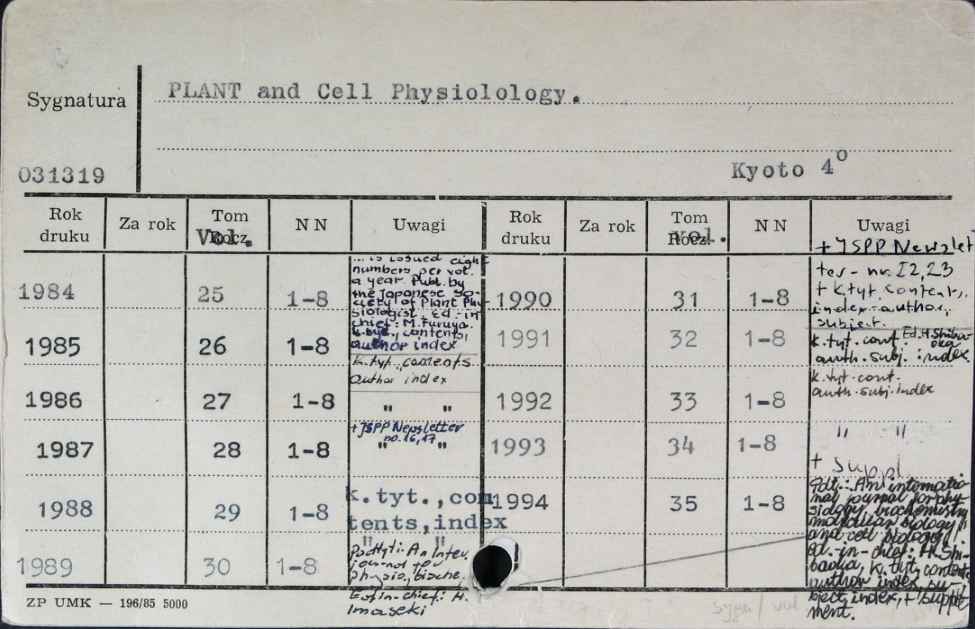 Sygnatura
PLANT and Cell Physiolology.
031319
Kyoto 4°
Rok druku Za rok Tom Rocz. Vol. N N Uwagi Rok druku Za rok Tom Rocz. vol. N N Uwagi
1984 25 1-8
... is issued eight
numbers per vol.
a year Publ. by
the Japonese So-
ciety of Plant Phy-
siologist. Ed.-in
chief: M. Furuya.
k. tyt., contents,
author index
1985 26 1-8
k. tyt., contents
author index
1986 27 1-8 " "
1987 28 1-8
+ JSPP Newsletter
no. 16, 17
" "
1988 29 1-8
k.tyt.,con
tents,index
1989 30 1-8
" "
Podtyt.: An Inter.
journal for
Physio., bioche.,
Ed.-in-chief: H.
Imaseki
1990 31 1-8
+ JSPP Newslet
ter - nr. 22, 23
+ k.tyt. contents,
index-author,
subject.
1991 32 1-8
k.tyt. cont. Ed. H. Shiba-
oka
auth. subj. index
1992 33 1-8
k.tyt. cont.
auth. subj. index
1993 34 1-8
" "
+ Suppl.
1994 35 1-8
Pdt.: An internatio-
nal journal for phy-
siology, biochemistry
molecular biology
and cell biology
Ed.-in-chief: H. Shi-
baoka, k. tyt, contents
author index su-
bject, index, + Supple-
ment.
sygn / vol
ZP UMK — 196/85 5000